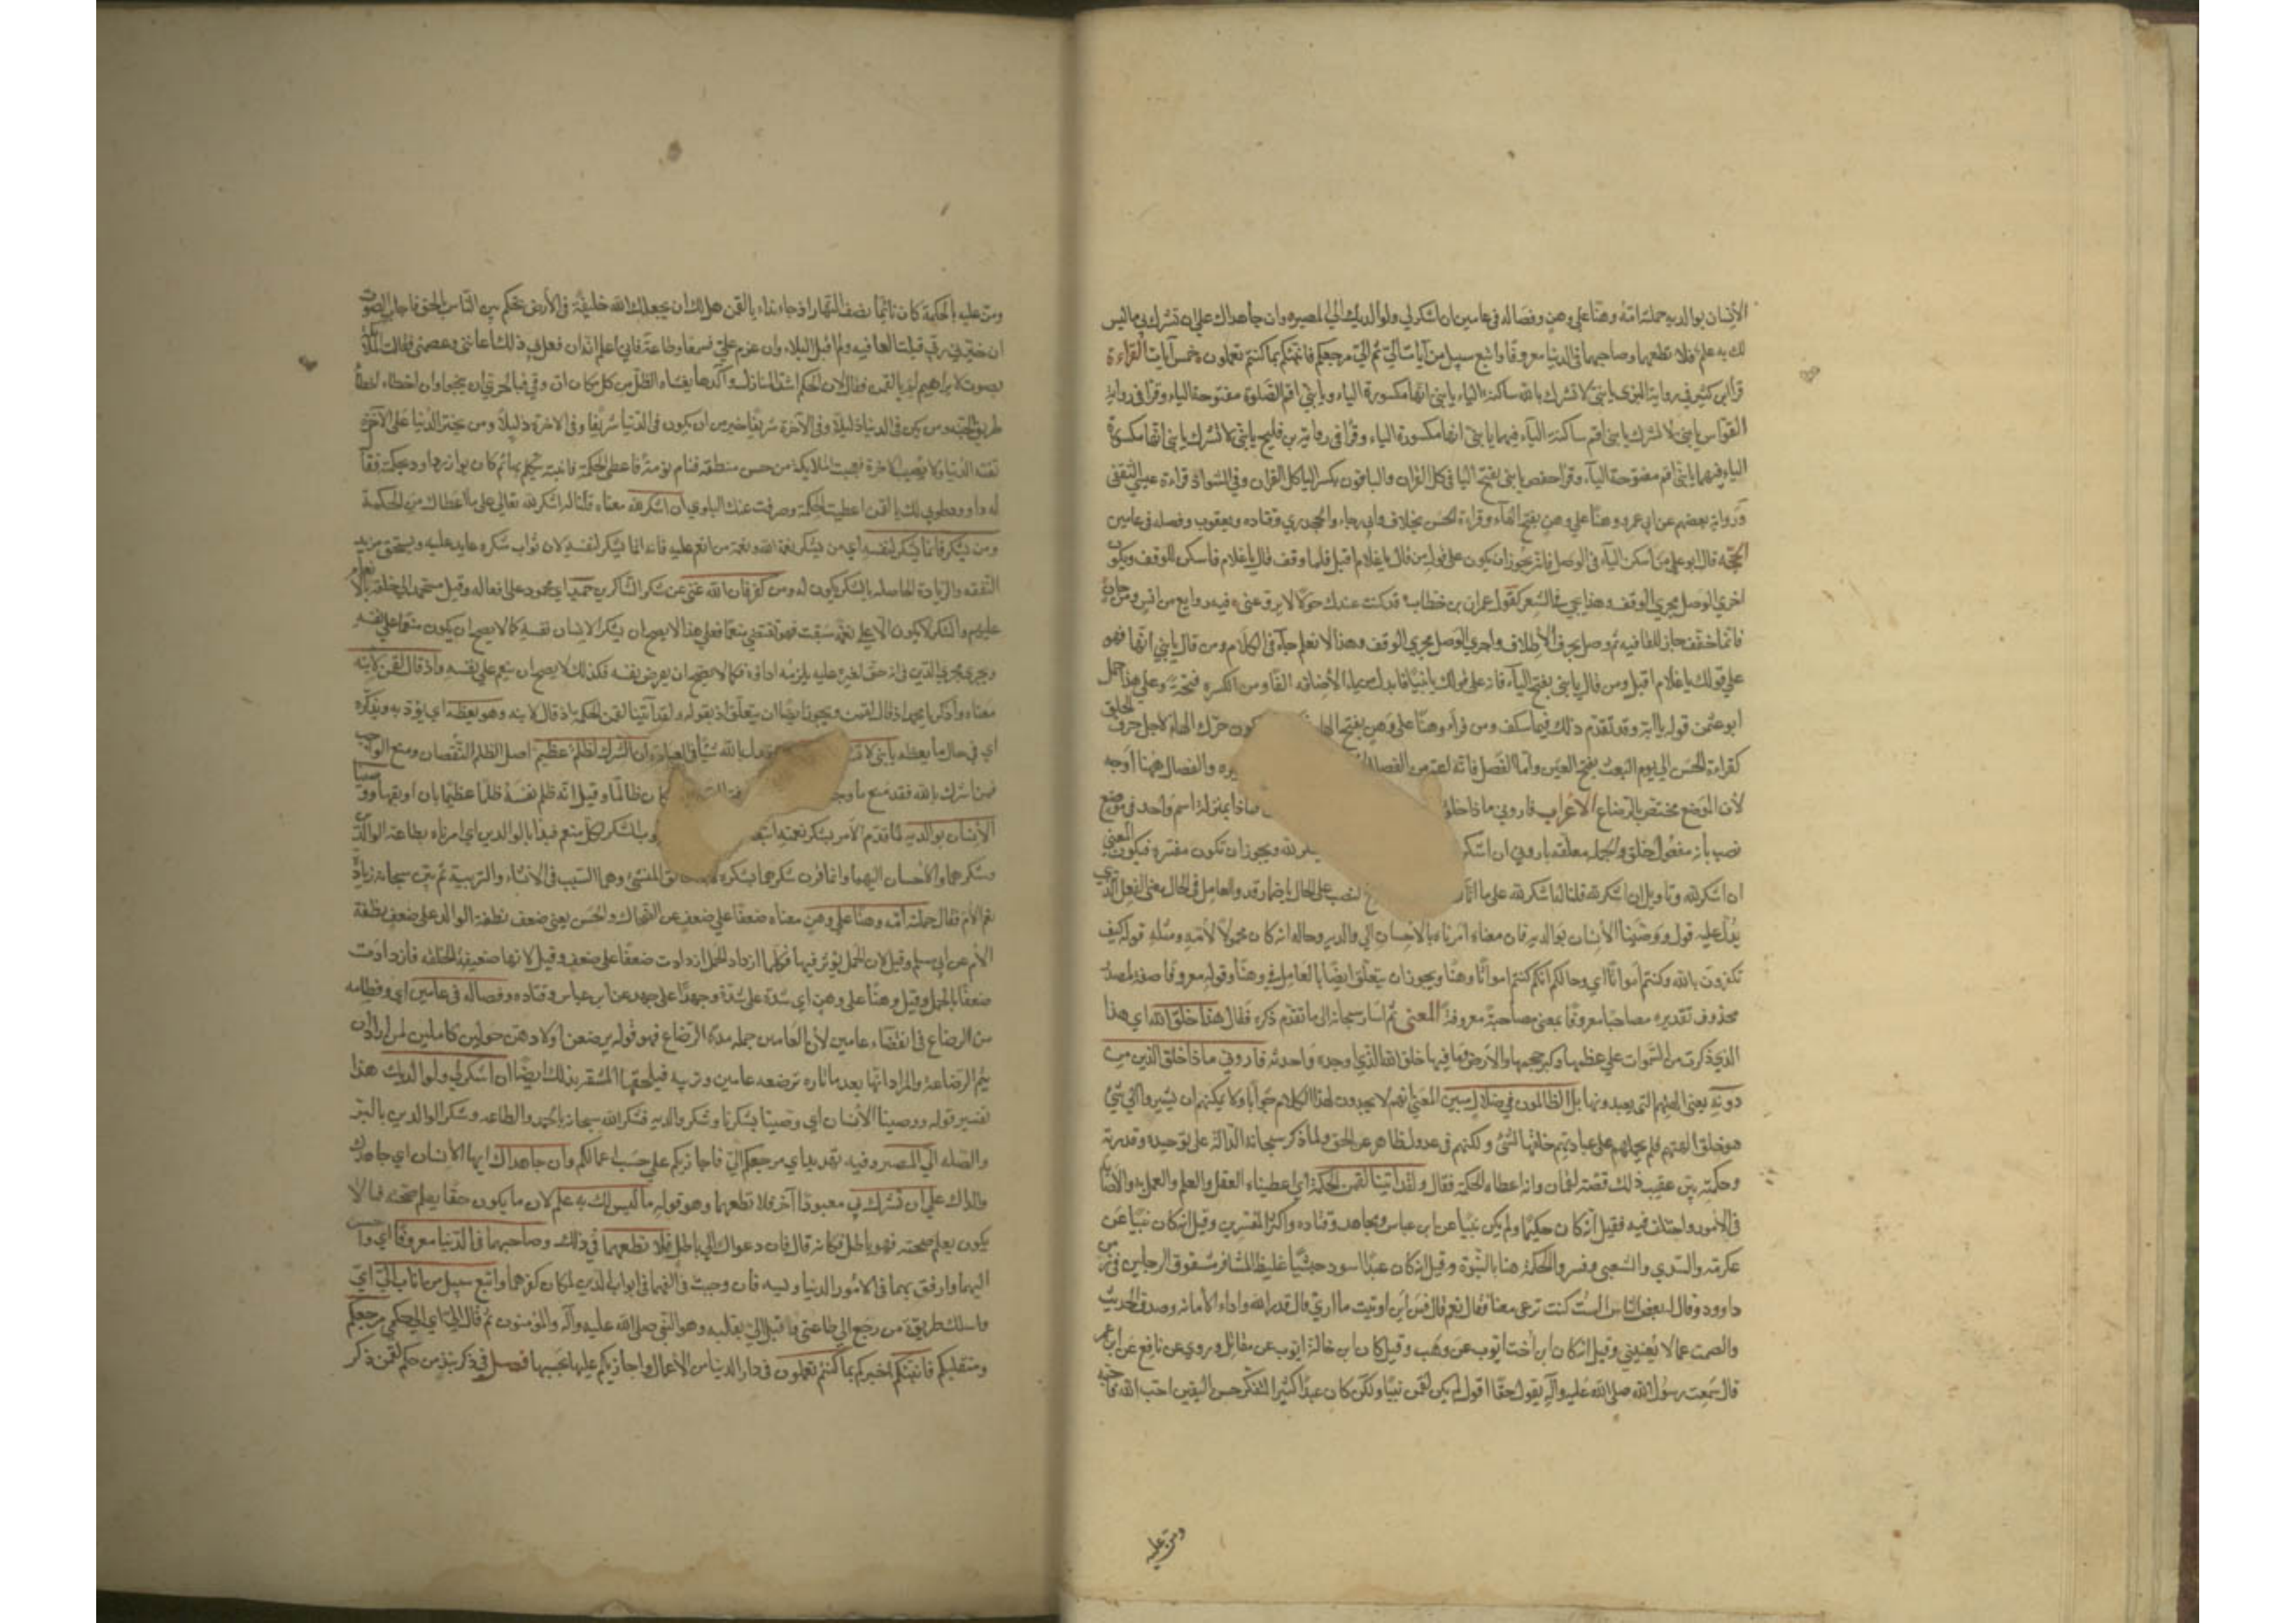 الأنسان بوالديه حملته امّه وهنًا علي وهن وفصاله في عامين ان اشكر لي ولوالديك اليّ المصير وان جاهداك علي ان تشرك بي ما ليس
لك به علم فلا تطعهما وصاحبهما في الدنيا معروفًا واتبع سبيل من اناب اليّ ثم اليّ مرجعكم فانبئكم بما كنتم تعملون خمس آيات القراءة
قرأ ابن كثير في رواية البزي يا بنيْ لا تشرك بالله ساكنة الياء يا بنيِ انها مكسورة الياء ويا بنيَ اقم الصلوة مفتوحة الياء وقرأ في رواية
القواس يا بني لا تشرك يا بني اقم ساكنة الياء فيهما يا بني انها مكسورة الياء وقرأ في رواية بن فليح يا بني لا تشرك يا بني انها مكسورة
الياء فيهما يا بني اقم مفتوحة الياء وقرأ حفص يا بني بفتح اليا في كل القران والباقون بكسر اليا كل القران وفي الشواذ قراءة عيسي الثقفي
ورواية بعضهم عن ابي عمرو وهنًا علي وهن بفتح الهاء وقراءة الحسن بخلاف وابي رجاء والجحدري وقتاده ويعقوب وفصله في عامين
الحجّه قال ابو علي من أسكن الياء في الوصل فانه يجوز ان يكون علي قول من قال يا غلام اقبل فلما وقف قال يا غلام فاسكن للوقف ويكون
اجري الوصل مجري الوقف وهذا يجي في الشعر كقول عمران بن خطاب قد كنت عندك حولا لا يروّعني فيه روايع من انس ومن جان
فانما خفّف جان للقافيه ثم وصل بحرف الأطلاف واجري الوصل مجري الوقف وهذا لا نعلم جاء في الكلام ومن قال يا بني انها فهو
علي قولك يا غلام اقبل ومن قال يا بني بفتح الياء فانه علي قولك يا بنيّا فابدل من ياء الأضافه الفًا ومن الكسره فتحة وعلي هذا حمل
ابو عثمن قوله يا ابة وقد تقدم ذلك فيما سلف ومن قرأ وهنًا علي وهن بفتح الها كون حرّك الهاء لاجل حرف الحلق
كقراءة الحسن الي يوم البعث بفتح العين وأما الفصل فانه اعم من الفصال يره والفصال ههنا اوجه
لأن الموضع مختص بالرضاع الأعراب فاروني ماذا خلق ماذا بمنزلة اسم واحد في موضع
نصب بأنه مفعول خلق والجمله معلقه باروني ان اشكر لله ويجوز ان تكون مفسره فيكون المعني
ان اشكر لله وتاويل ان اشكر لله قلنا له اشكر لله علي ما اتا لنصب علي الحال باضمار قد والعامل في الحال معني الفعل الذي
يدل عليه قوله ووصينا الأنسان بوالديه فان معناه امرناه بالاحسان الي والديه وحاله انه كان محمولاً لأمه ومثله قوله كيف
تكفرون بالله وكنتم أمواتًا اي وحالكم انكم كنتم امواتًا وهنًا ويجوز ان يتعلق ايضًا بالعامل في وهنًا وقوله معروفا صفة لمصدر
محذوف تقديره مصاحبا معروفًا بمعني مصاحبةً معروفة المعني ثم اشار سبحانه الي ما تقدم ذكره فقال هذا خلق الله اي هذا
الذي ذكرت من السموات علي عظمها وكبر حجمها والأرض وما فيها خلق الله الذي اوجده واحدثه فاروني ماذا خلق الذين من
دونه يعني الهتهم التي يعبدونها بل الظالمون في ضلال مبين المعني انهم لا يجدون لهذا الكلام جوابا ولا يمكنهم ان يشيروا الي شي
هو خلق الهتهم فلم يحملهم علي عبادتهم خلقها لشئ ولكنهم في عدول ظاهر عن الحق ولما ذكر سبحانه الدالة علي توحيده وقدرته
وحكمته بين عقيب ذلك قصة لقمان وانه اعطاه الحكمة فقال ولقد اتينا لقمن الحكمة اي اعطيناه العقل والعلم والعمل به والأصابة
في الأمور واختلف فيه فقيل انه كان حكيمًا ولم يكن نبيًا عن ابن عباس ومجاهد وقتاده واكثر المفسرين وقيل انه كان نبيًا عن
عكرمه والسدي والشعبي وفسروا الحكمة هنا بالنبوة وقيل انه كان عبدًا اسود حبشيًّا غليظ المشافر مشقوق الرجلين في زمن
داوود وقال له بعض الناس الست كنت ترعي معنا فقال نعم قال فمن اين اوتيت ما اري قال قدر الله واداء الأمانه وصدق الحديث
والصمت عما لا يعنيني وقيل انه كان ابن اخت ايوب عن وهب وقيل كان ابن خالة ايوب عن مقاتل وروي عن نافع عن ابن عمر
قال سمعت رسول الله صلي الله عليه وآله يقول حقًا اقول لم يكن لقمن نبيًا ولكن كان عبدًا كثير التفكر حسن اليقين احب الله فاحبه
ومنّ عليه
ومنّ عليه بالحكمة كان نائمًا نصف النهار اذ جاءه نداء يا لقمن هل لك ان يجعلك الله خليفة في الأرض تحكم بين الناس بالحق فاجاب الصوت
ان خيّرني ربي قبلت العافيه ولم اقبل البلاء وان عزم عليّ فسمعا وطاعة فاني اعلم انه ان فعل بي ذلك أعانني وعصمني فقالت الملائكة
بصوت لا يراهم لم يا لقمن فقال لان الحكم اشد المنازل وآكدها يغشاه الظلم من كل مكان ان وقي فبالحري ان ينجو وان اخطاء اخطأ
طريق الجنه ومن يكن في الدنيا ذليلاً وفي الآخرة شريفًا خير من ان يكون في الدنيا شريفًا وفي الاخرة ذليلاً ومن يختر الدنيا علي الآخرة
تفته الدنيا ولا يصيب الاخرة فعجبت الملايكة من حسن منطقه فنام نومة فاعطي الحكمة فانتبه يتكلم بها ثم كان يوازر داود بحكمته فقال
له داوود طوبي لك يا لقمن اعطيت الحكمة وصرفت عنك البلوي أن اشكر لله معناه قلنا له اشكر لله تعالي علي ما اعطاك من الحكمة
ومن يشكر فانما يشكر لنفسه اي من يشكر نعمة الله ونعمة من انعم عليه فانه انما يشكر لنفسه لان ثواب شكره عايد عليه ويستحق مزيد
النفقه والزيادة الحاصله بالشكر يكون له ومن كفر فان الله غني عن شكر الشاكرين حميد اي محمود علي افعاله وقيل مستحمد الي خلقه بالانعام
عليهم والشكر لا يكون الا علي نعمة سبقت فهو يقتضي منعمًا فعلي هذا لا يصح ان يشكر الانسان نفسه كما لا يصح ان يكون منعمًا علي نفسه
ويجري مجري الدَين في انه حق لغيره عليه يلزمه اداؤه فكما لا يصح ان يقرض نفسه فكذلك لا يصح ان ينعم علي نفسه واذ قال لقمن لابنه
معناه واذكر يا محمد اذ قال لقمن ويجوز ايضًا ان يتعلق اذ بقوله ولقد آتينا لقمن الحكمة اذ قال لابنه وهو يعظه اي يؤدبه ويذكره
اي في حال ما يعظه يا بني لا تش عدل بالله شيًا في العبادة ان الشرك لظلم عظيم اصل الظلم النقصان ومنع الواجب
فمن اشرك بالله فقد منع ما وجب كان ظالمًا وقيل انه ظلم نفسه ظلمًا عظيمًا بان اوبقها ووصينا
الأنسان بوالديه لما قدم الأمر بشكر نعمته اتبعه وب الشكر لكل منعم فبدأ بالوالدين اي امرناه بطاعة الوالدين
وشكرهما والأحسان اليهما وانما قرن شكرهما بشكره لق المنشئ وهما السبب في الانشاء والتربية ثم بين سبحانه زيادة
نعم الأم فقال حملته أمه وهنًا علي وهن معناه ضعفًا علي ضعف عن الضحاك والحسن يعني ضعف نطفة الوالد علي ضعف نطفة
الأم عن ابي مسلم وقيل لان الحمل يؤثر فيها فكلما ازداد الحمل ازدادت ضعفًا علي ضعف وقيل لانها ضعيفة الخلقه فازدادت
ضعفًا بالحمل وقيل وهنًا علي وهن اي شدة علي شدّة وجهدًا علي جهد عن ابن عباس وقتاده وفصاله في عامين اي وفطامه
من الرضاع في انقضاء عامين لأن العامين جملة مدة الرضاع فهو قوله يرضعن اولادهن حولين كاملين لمن اراد ان
يتم الرضاعة والمراد انها بعد ما تلده ترضعه عامين وتربيه فيلحقها المشقه بذلك ايضًا ان اشكر لي ولوالديك هذا
تفسير قوله ووصينا الأنسان اي وصينا بشكرنا وشكر والديه فشكر الله سبحانه بالحمد والطاعه وشكر الوالدين بالبر
والصله الي المصير وفيه تهديد اي مرجعكم اليّ فاجازيكم علي حسب اعمالكم وان جاهداك ايها الأنسان اي جاهدك
والداك علي ان تشرك بي معبودًا آخر فلا تطعهما وهو قوله ما ليس لك به علم لان ما يكون حقًا يعلم صحته فما لا
يكون يعلم صحته فهو باطل فكانه قال فان دعواك الي باطل فلا تطعهما في ذلك وصاحبهما في الدنيا معروفًا اي واحسن
اليهما وارفق بهما في الأمور الدنياوييه فان وجبت مخالفتهما في ابواب الدين لمكان كفرهما واتبع سبيل من اناب اليّ اي
واسلك طريقة من رجع الي طاعتي واقبل اليّ بقلبه وهو النبي صلي الله عليه وآله والمؤمنون ثم قال اليّ اي الي حكمي مرجعكم
ومنقلبكم فانبئكم اخبركم بما كنتم تعملون في دار الدنيا من الأعمال واجازيكم عليها بحسبها فصل في ذكر نبذ من حكم لقمن ذكر